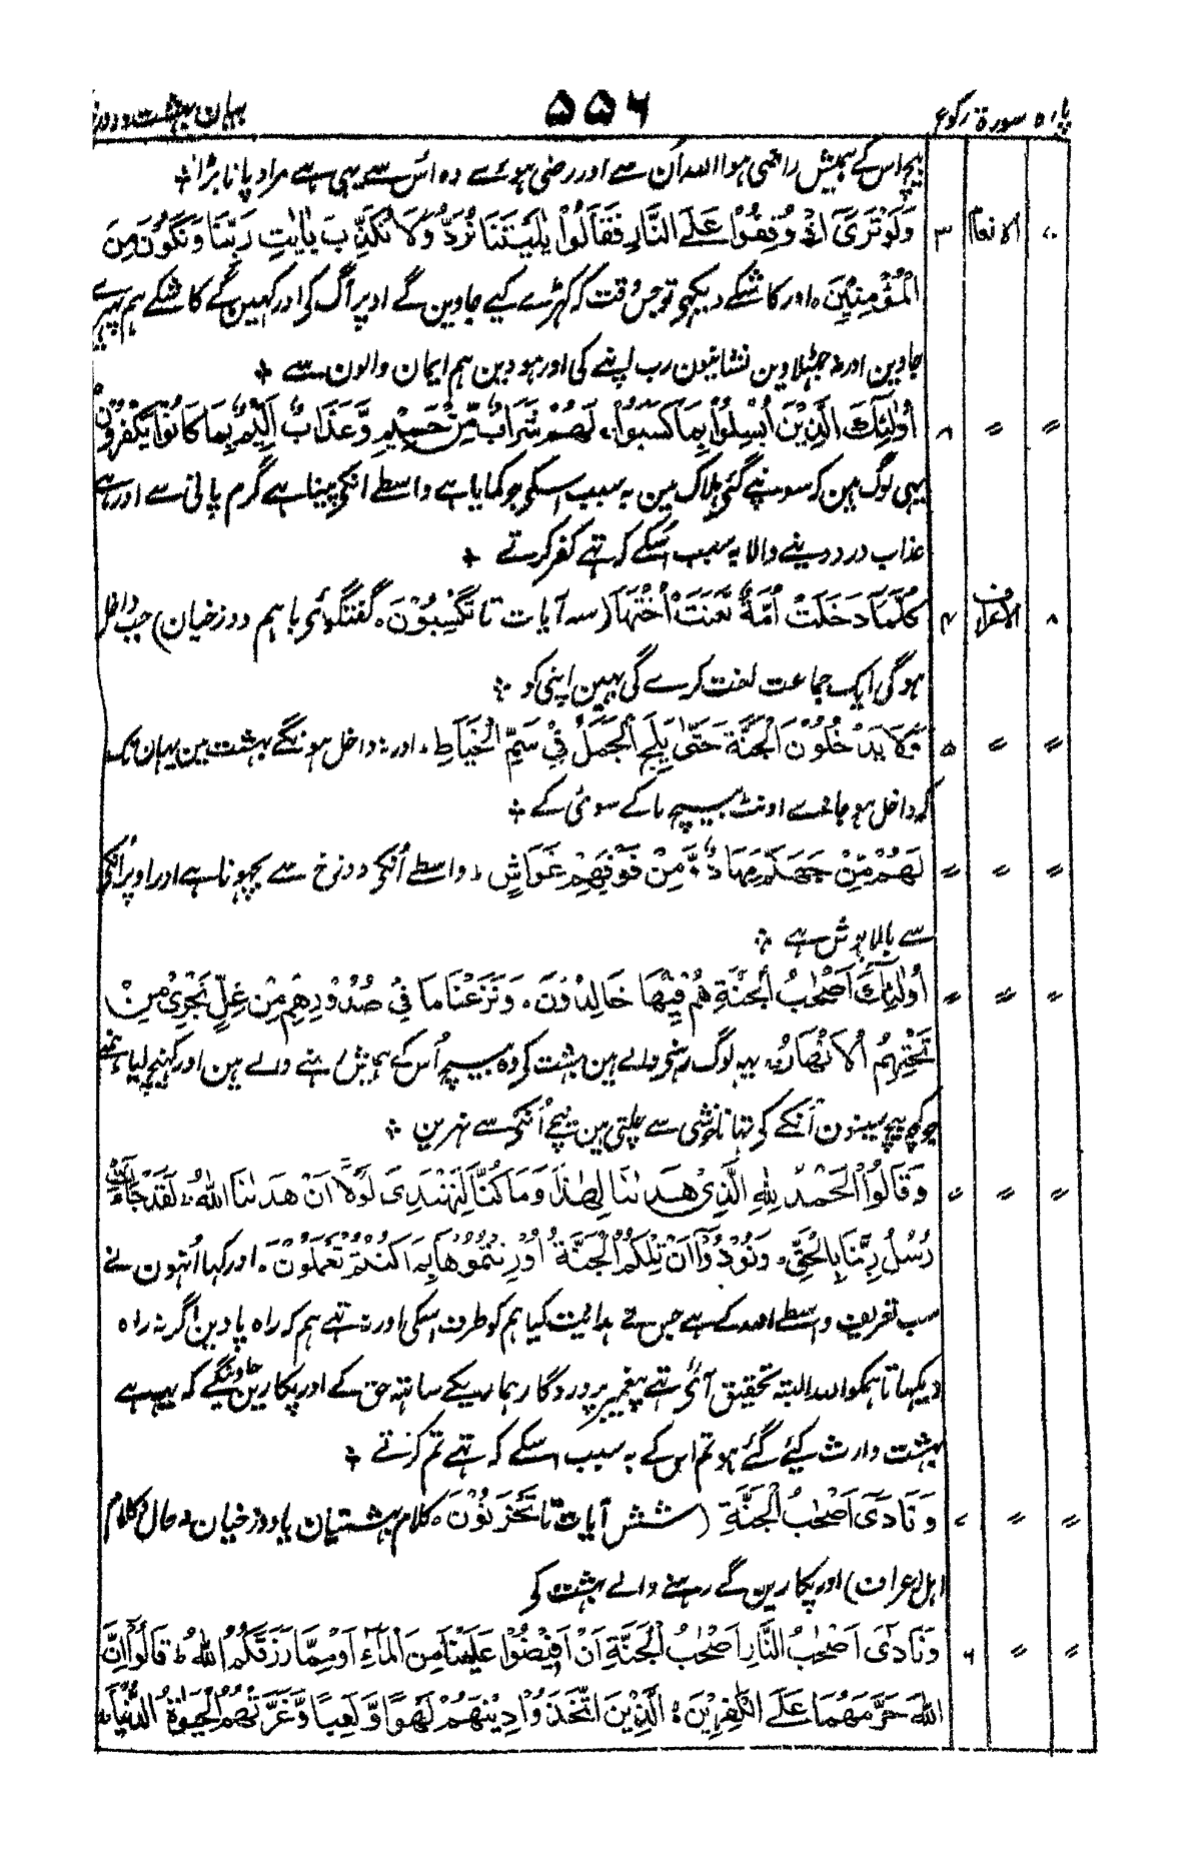 پارہ سورۃ رکوع ۵۵۶ بیان بہشت و دوزخ
بیچ اس کے ہمیش راضی ہوا اللہ اُن سے اور رضی ہوئے وہ اُس سے یہی ہے مراد پانا بڑا
۷ الانعام ۳ وَلَوْ تَرٰٓى اِذْ وُقِفُوْا عَلَى النَّارِ فَقَالُوْا يٰلَيْتَنَا نُرَدُّ وَلَا نُكَذِّبَ بِاٰيٰتِ رَبِّنَا وَنَكُوْنَ مِنَ
الْمُؤْمِنِيْنَ ۰ اور کاشکے دیکہے تو جس وقت کہ کہڑے کیے جاوین گے اوپر آگ کی اور کہین گے کاشکے ہم پہیرے
جاوین اور نہ جہٹلاوین نشانیون رب اپنے کی اور ہووین ہم ایمان والون سے
〃 〃 ۸ اُولٰٓئِكَ الَّذِيْنَ اُبْسِلُوْا بِمَا كَسَبُوْا ۰ لَهُمْ شَرَابٌ مِّنْ حَمِيْمٍ وَّعَذَابٌ اَلِيْمٌ بِمَا كَانُوْا يَكْفُرُوْنَ
یہی لوگ ہین کہ سونپے گئی ہلاک مین بہ سبب اسکی جو کمایا ہے واسطے انکی پینا ہے گرم پانی سے اور ہے
عذاب درد دینے والا بہ سبب اسکے کہ تہے کفر کرتے
۸ الاعراف ۴ كُلَّمَا دَخَلَتْ اُمَّةٌ لَّعَنَتْ اُخْتَهَا (سہ آیات تا تَكْسِبُوْنَ ۰ گفتگوئی باہم دوزخیان) جب داخل
ہوگی ایک جماعت لعنت کرے گی بہین اپنی کو
〃 〃 ۵ وَلَا يَدْخُلُوْنَ الْجَنَّةَ حَتّٰى يَلِجَ الْجَمَلُ فِيْ سَمِّ الْخِيَاطِ ۰ اور نہ داخل ہونگے بہشت مین یہان تک
کہ داخل ہو جائے اونٹ بیچ ناکے سوئی کے
〃 〃 〃 لَهُمْ مِّنْ جَهَنَّمَ مِهَادٌ وَّمِنْ فَوْقِهِمْ غَوَاشٍ ۰ واسطے اُنکی دوزخ سے بچہونا ہے اور اوپر انکی
سے بالاپوش ہے
〃 〃 〃 اُولٰٓئِكَ اَصْحٰبُ الْجَنَّةِ هُمْ فِيْهَا خَالِدُوْنَ ۰ وَنَزَعْنَا مَا فِيْ صُدُوْرِهِمْ مِنْ غِلٍّ تَجْرِيْ مِنْ
تَحْتِهِمُ الْاَنْهَارُ ۰ یہ لوگ رہنو والے ہین بہشت کو وہ بیچ اُس کے ہمیش رہنے والے ہین اور کہینچ لیا ہمنے
جو کچھ بیچ سینون اُنکے کو تہا ناخوشی سے چلتی ہین نیچے اُنکو سے نہرین
〃 〃 〃 وَقَالُوا الْحَمْدُ لِلّٰهِ الَّذِيْ هَدٰىنَا لِهٰذَا وَمَا كُنَّا لِنَهْتَدِىَ لَوْلَآ اَنْ هَدٰىنَا اللّٰهُ ۰ لَقَدْ جَآءَتْ
رُسُلُ رَبِّنَا بِالْحَقِّ ۰ وَنُوْدُوْٓا اَنْ تِلْكُمُ الْجَنَّةُ اُوْرِثْتُمُوْهَا بِمَا كُنْتُمْ تَعْمَلُوْنَ ۰ اور کہا اُنہون نے
سب تعریف واسطے اللہ کے ہے جس نے ہدایت کیا ہم کو طرف اسکی اور نہ تہے ہم کہ راہ پاوین اگر نہ راہ
دیکہاتا ہمکو اللہ البتہ تحقیق آئی تہے پیغمبر پروردگار ہمارے کے ساتہ حق کے اور پکارین جاوینگے کہ یہ ہے
بہشت وارث کیئے گئے ہو تم اس کے بہ سبب اسکے کہ تہے تم کرتے
〃 〃 ۷ وَنَادٰٓى اَصْحٰبُ الْجَنَّةِ (شش آیات تا تَحْزَنُوْنَ ۰ کلام بہشتیان با دوزخیان و حال و کلام
اہل اعراف) اور پکارین گے رہنے والے بہشت کو
〃 〃 ۶ وَنَادٰٓى اَصْحٰبُ النَّارِ اَصْحٰبَ الْجَنَّةِ اَنْ اَفِيْضُوْا عَلَيْنَا مِنَ الْمَآءِ اَوْ مِمَّا رَزَقَكُمُ اللّٰهُ ط قَالُوْٓا اِنَّ
اللّٰهَ حَرَّمَهُمَا عَلَى الْكٰفِرِيْنَ ۰ الَّذِيْنَ اتَّخَذُوْا دِيْنَهُمْ لَهْوًا وَّلَعِبًا وَّغَرَّتْهُمُ الْحَيٰوةُ الدُّنْيَا